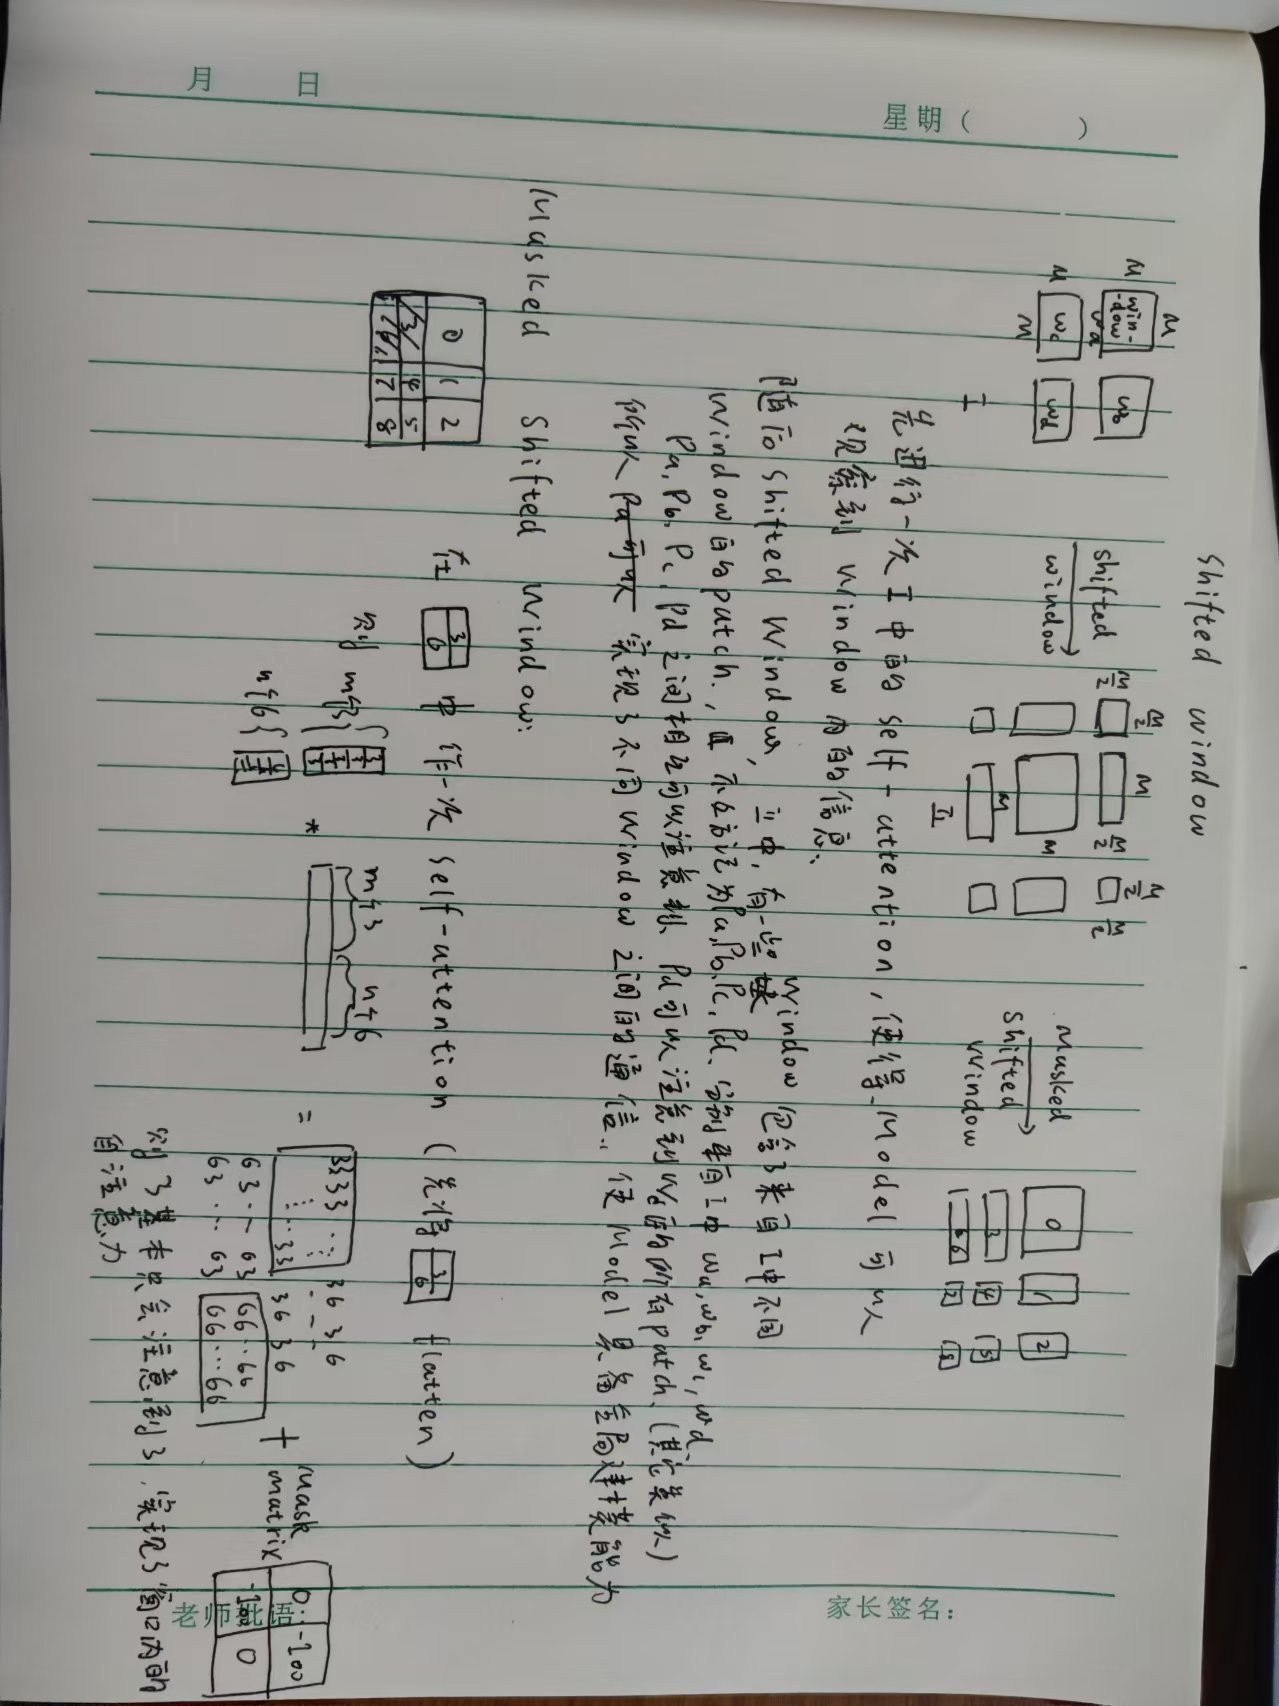 月 日
星期( )
老师批语:
家长签名:
Shifted window
M
M
win-
dow
wa
wb
M
wc
M
wd
I
shifted
window
M/2
M/2
M
M/2
M/2
M/2
M
M
II
Masked
Shifted
Window
0 1 2
3 4 5
6 7 8
先进行一次I中的 self-attention, 使得 Model 可以
观察到 window 内的信息.
随后 shifted window, II中, 有一些 window 包含了来自I中不同
window的patch, 不妨记为Pa, Pb, Pc, Pd. 分别来自I中 wa, wb, wc, wd.
Pa, Pb, Pc, Pd 之间相互可以注意到, Pd可以注意到Wd的所有patch. (其它类似)
所以 实现了不同window 之间的通信. 使 Model 具备全局建模能力
Masked Shifted Window:
0 1 2
3 4 5
6 7 8
在 3 6 中 作一次 self-attention (先将 3 6 flatten)
则 m个3
n个6
*
m个3 n个6
=
3333 ⋯ 36 36
⋯ 33 36 36
63 ⋯ 63 66 ⋯ 66
63 ⋯ 63 66 ⋯ 66
+ mask
matrix
0 -100
-100 0
则3基本只会注意到3, 实现了窗口内的
自注意力